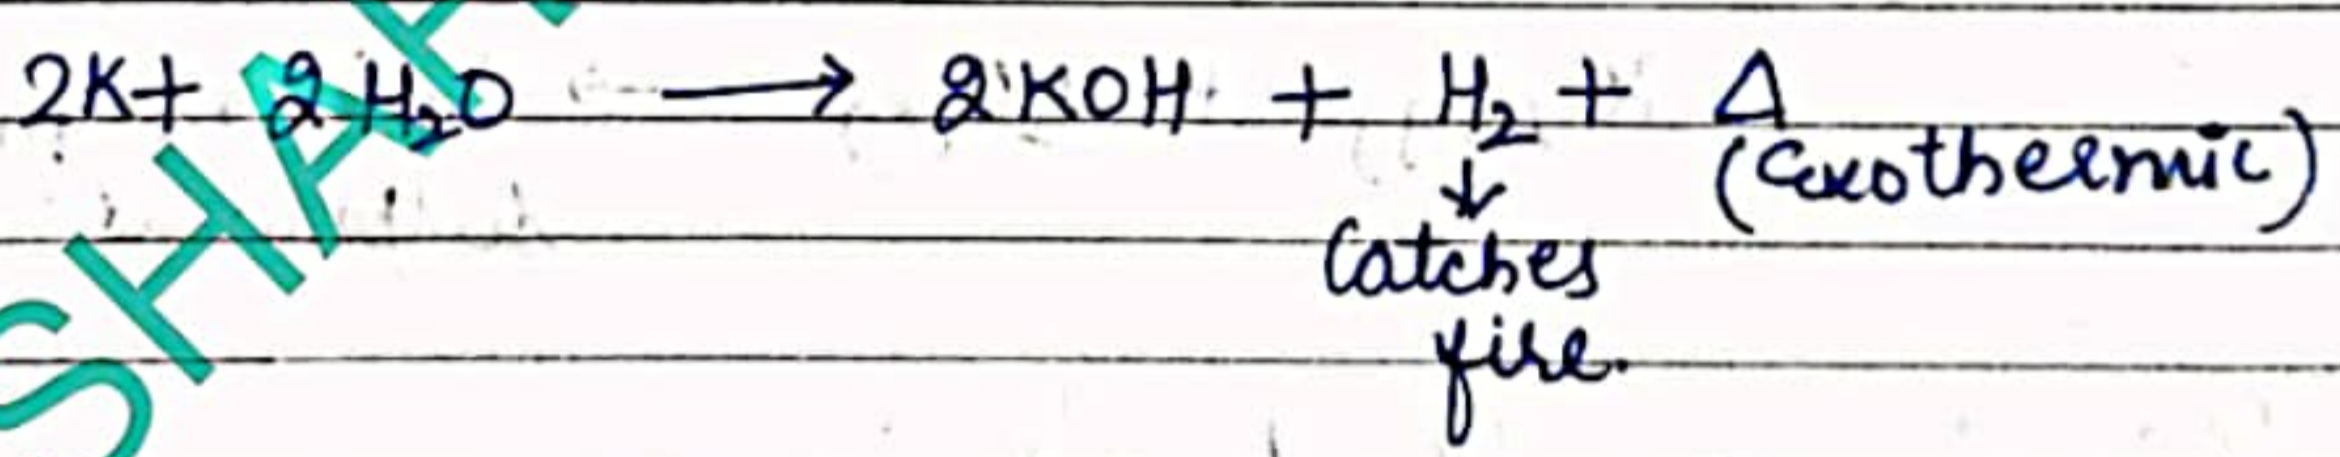 2K + 2H₂O ⟶ 2KOH + H₂ + Δ
(exothermic)
↓
Catches
fire.
SHA